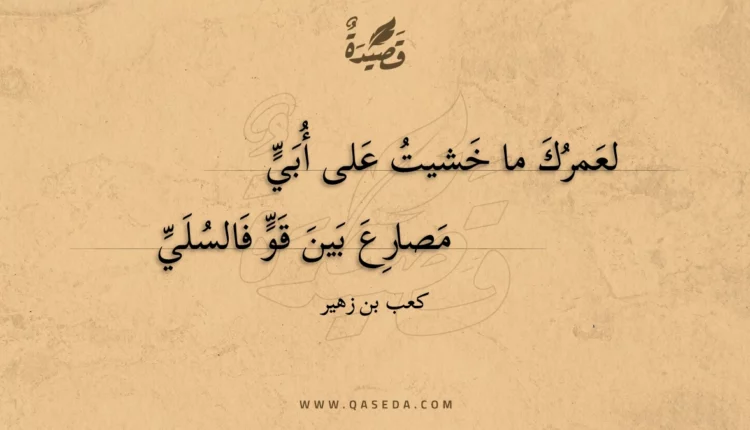 قَصِيْدَةٌ
لعَمرُكَ ما خَشيتُ عَلى أُبَيٍّ
مَصارِعَ بَينَ قَوٍّ فَالسُلَيِّ
كعب بن زهير
WWW.QASEDA.COM